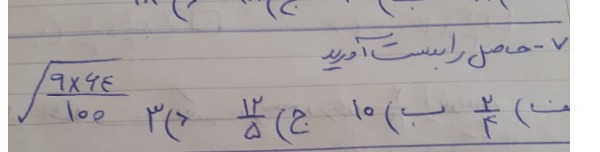 ۷- حاصل را بدست آورید
√(۹×۶۴/۱۰۰)
الف) ۲/۴ ب) ۱۰ ج) ۱۲/۵ د) ۳